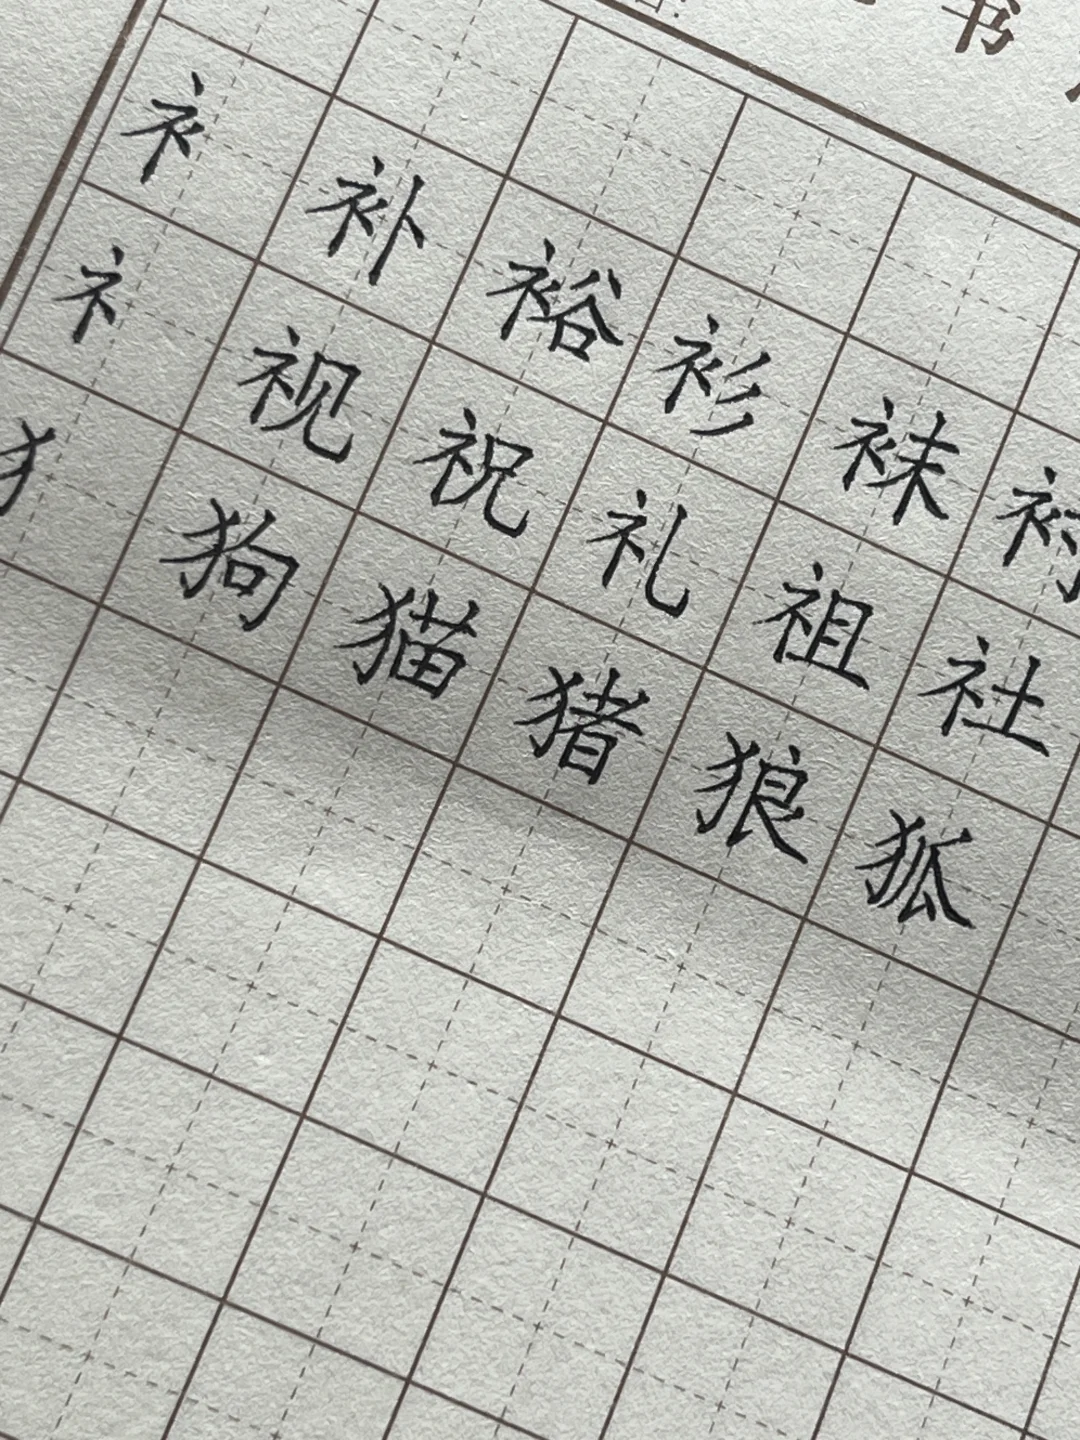 书
衤补裕衫袜衬
礻视祝礼祖社
犭狗猫猪狼狐